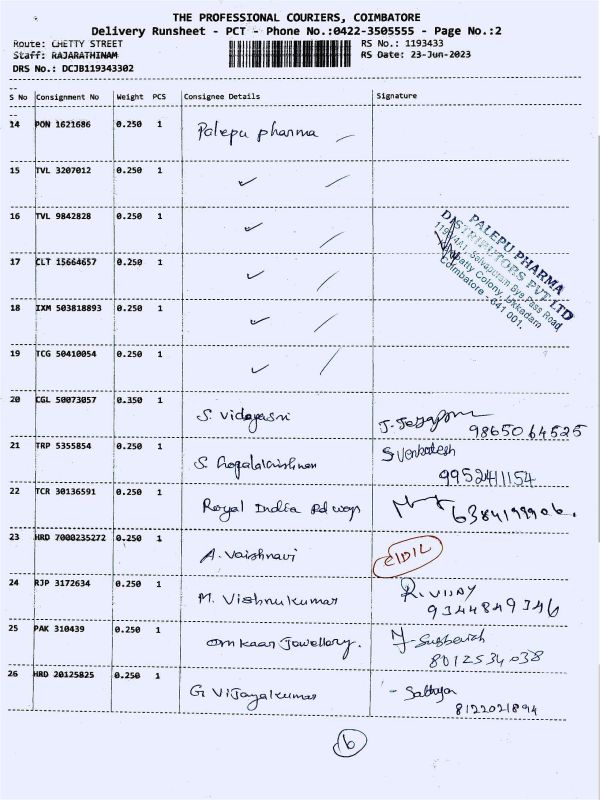 THE PROFESSIONAL COURIERS, COIMBATORE
Delivery Runsheet - PCT - Phone No.:0422-3505555 - Page No.:2
Route: CHETTY STREET RS No.: 1193433
Staff: RAJARATHINAM RS Date: 23-Jun-2023
DRS No.: DCJB119343302
S No Consignment No Weight PCS Consignee Details Signature
14 PON 1621686 0.250 1 Palepu pharma
15 TVL 3207012 0.250 1 ✓
16 TVL 9842828 0.250 1 ✓
17 CLT 15664657 0.250 1 ✓
18 IXM 503818893 0.250 1 ✓
19 TCG 50410054 0.250 1 ✓
PALEPU PHARMA
DISTRIBUTORS PVT LTD
Selvapuram Bye Pass Road
Colony, Ukkadam
Coimbatore - 641 001.
20 CGL 50073057 0.350 1 S. Vidayasri
9865064525
21 TRP 5355854 0.250 1 S. S Venkatesh
9952411154
22 TCR 30136591 0.250 1 Royal India
6384199906.
23 HRD 7000235272 0.250 1 A. Vaishnavi
24 RJP 3172634 0.250 1 M. Vishnukumar R. VIJAY
9344849346
25 PAK 310439 0.250 1 omkaar Jowellory.
8012534038
26 HRD 20125825 0.250 1 G Vijayakumar
8122021894
16